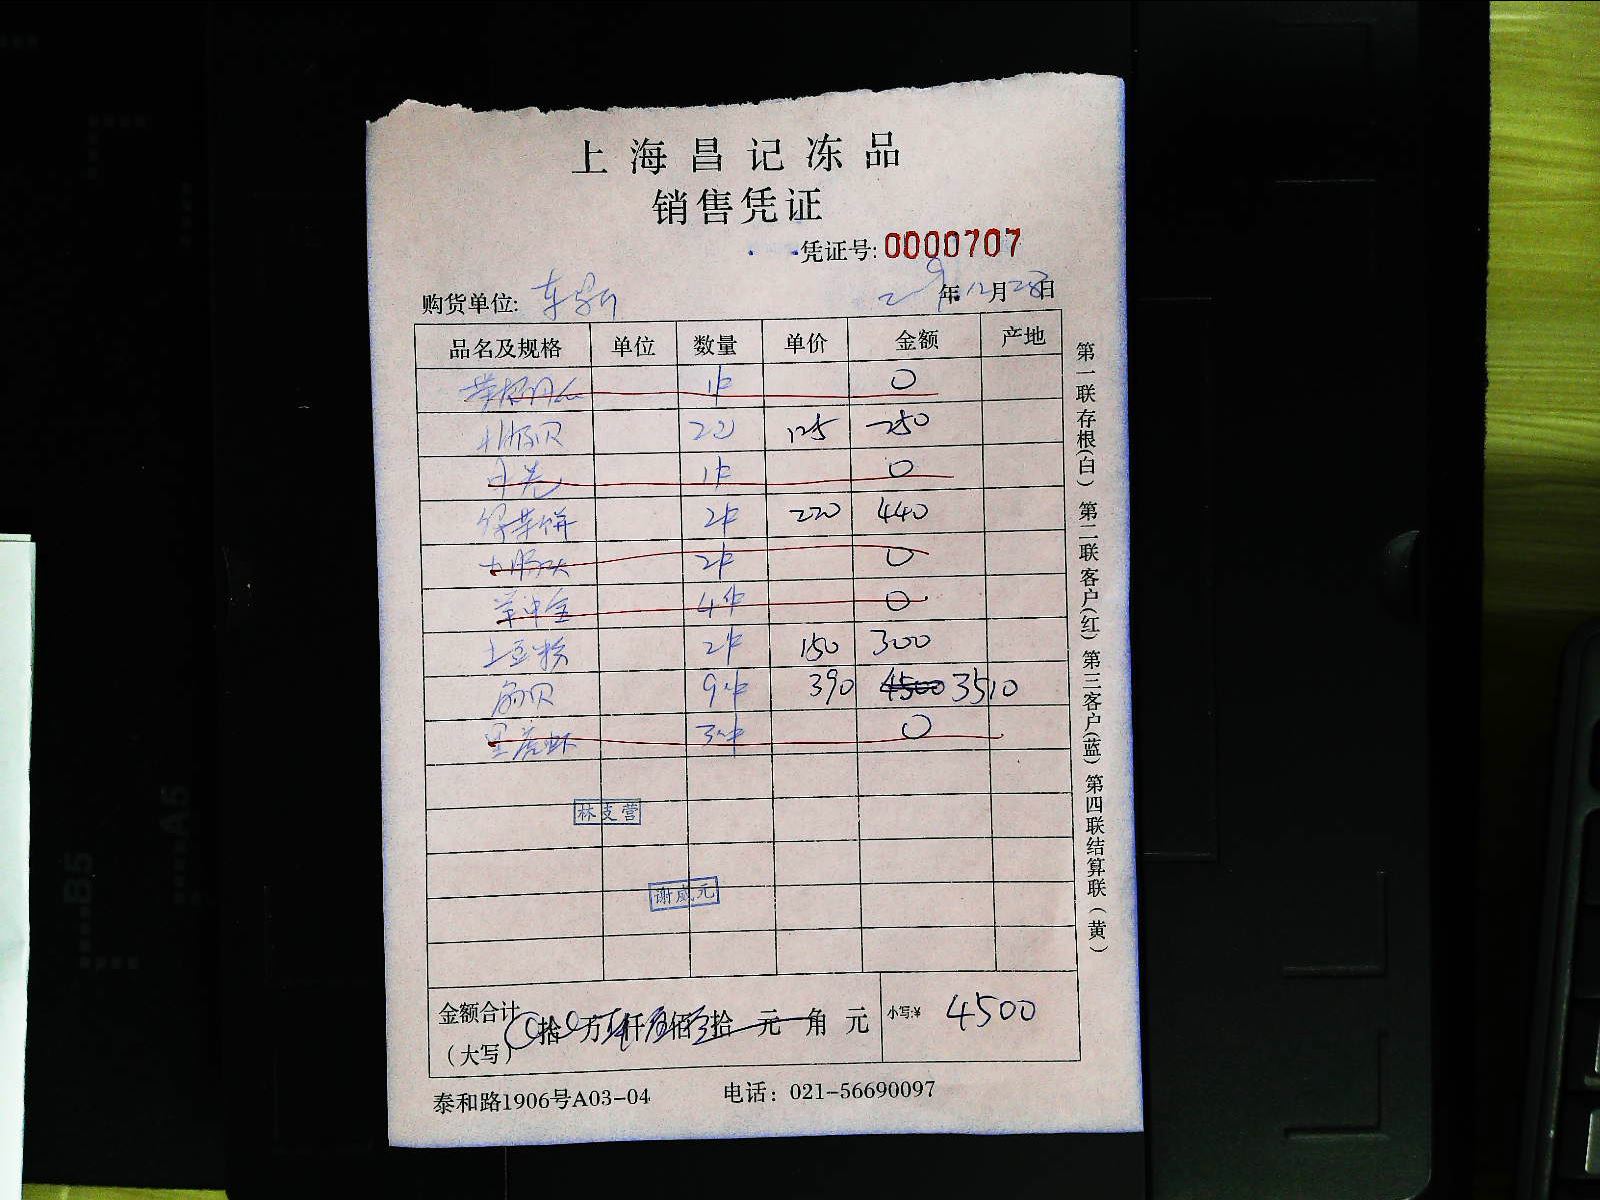 上海昌记冻品
销售凭证
凭证号: 0000707
购货单位:
年 12月28日
品名及规格 单位 数量 单价 金额 产地
1件 0
2 125 250
1件 0
2件 220 440
2件 0
4件 0
土豆粉 2件 150 300
扇贝 9件 390 4500 3510
黑虎虾 3件 0
林支营
谢咸元
金额合计 拾 万 仟 佰 拾 元 角 元 小写:¥ 4500
(大写)
泰和路1906号A03-04 电话: 021-56690097
第一联存根(白) 第二联客户(红) 第三客户(蓝) 第四联结算联(黄)